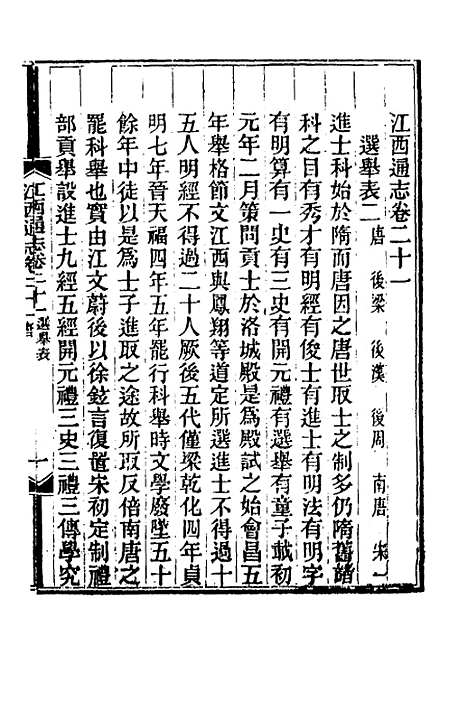 江西通志卷二十一
選舉表二 唐 後梁 後漢 後周 南唐 宋一
進士科始於隋而唐因之唐世取士之制多仍隋舊諸
科之目有秀才有明經有俊士有進士有明法有明字
有明算有一史有三史有開元禮有選舉有童子載初
元年二月策問貢士於洛城殿是為殿試之始會昌五
年舉格節文江西與鳳翔等道定所選進士不得過十
五人明經不得過二十人厥後五代僅梁乾化四年貞
明七年晉天福四年五年罷行科舉時文學廢墜五十
餘年中徒以是為士子進取之途故所取反倍南唐之
罷科舉也實由江文蔚後以徐鉉言復置宋初定制禮
部貢舉設進士九經五經開元禮三史三禮三傳學究
江西通志卷二十一 選舉表 唐 一